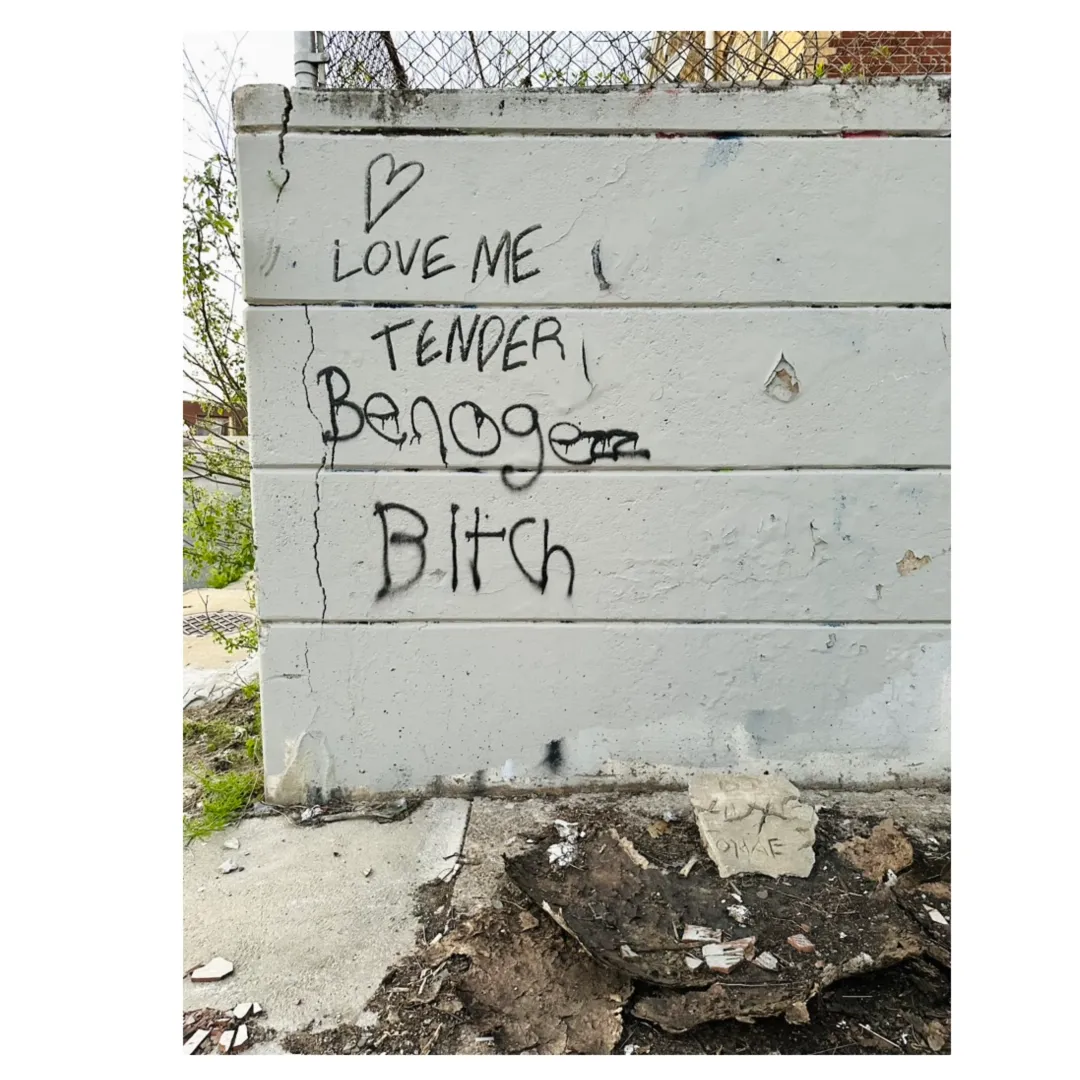 LOVE ME
TENDER
Benogezz
BItCh